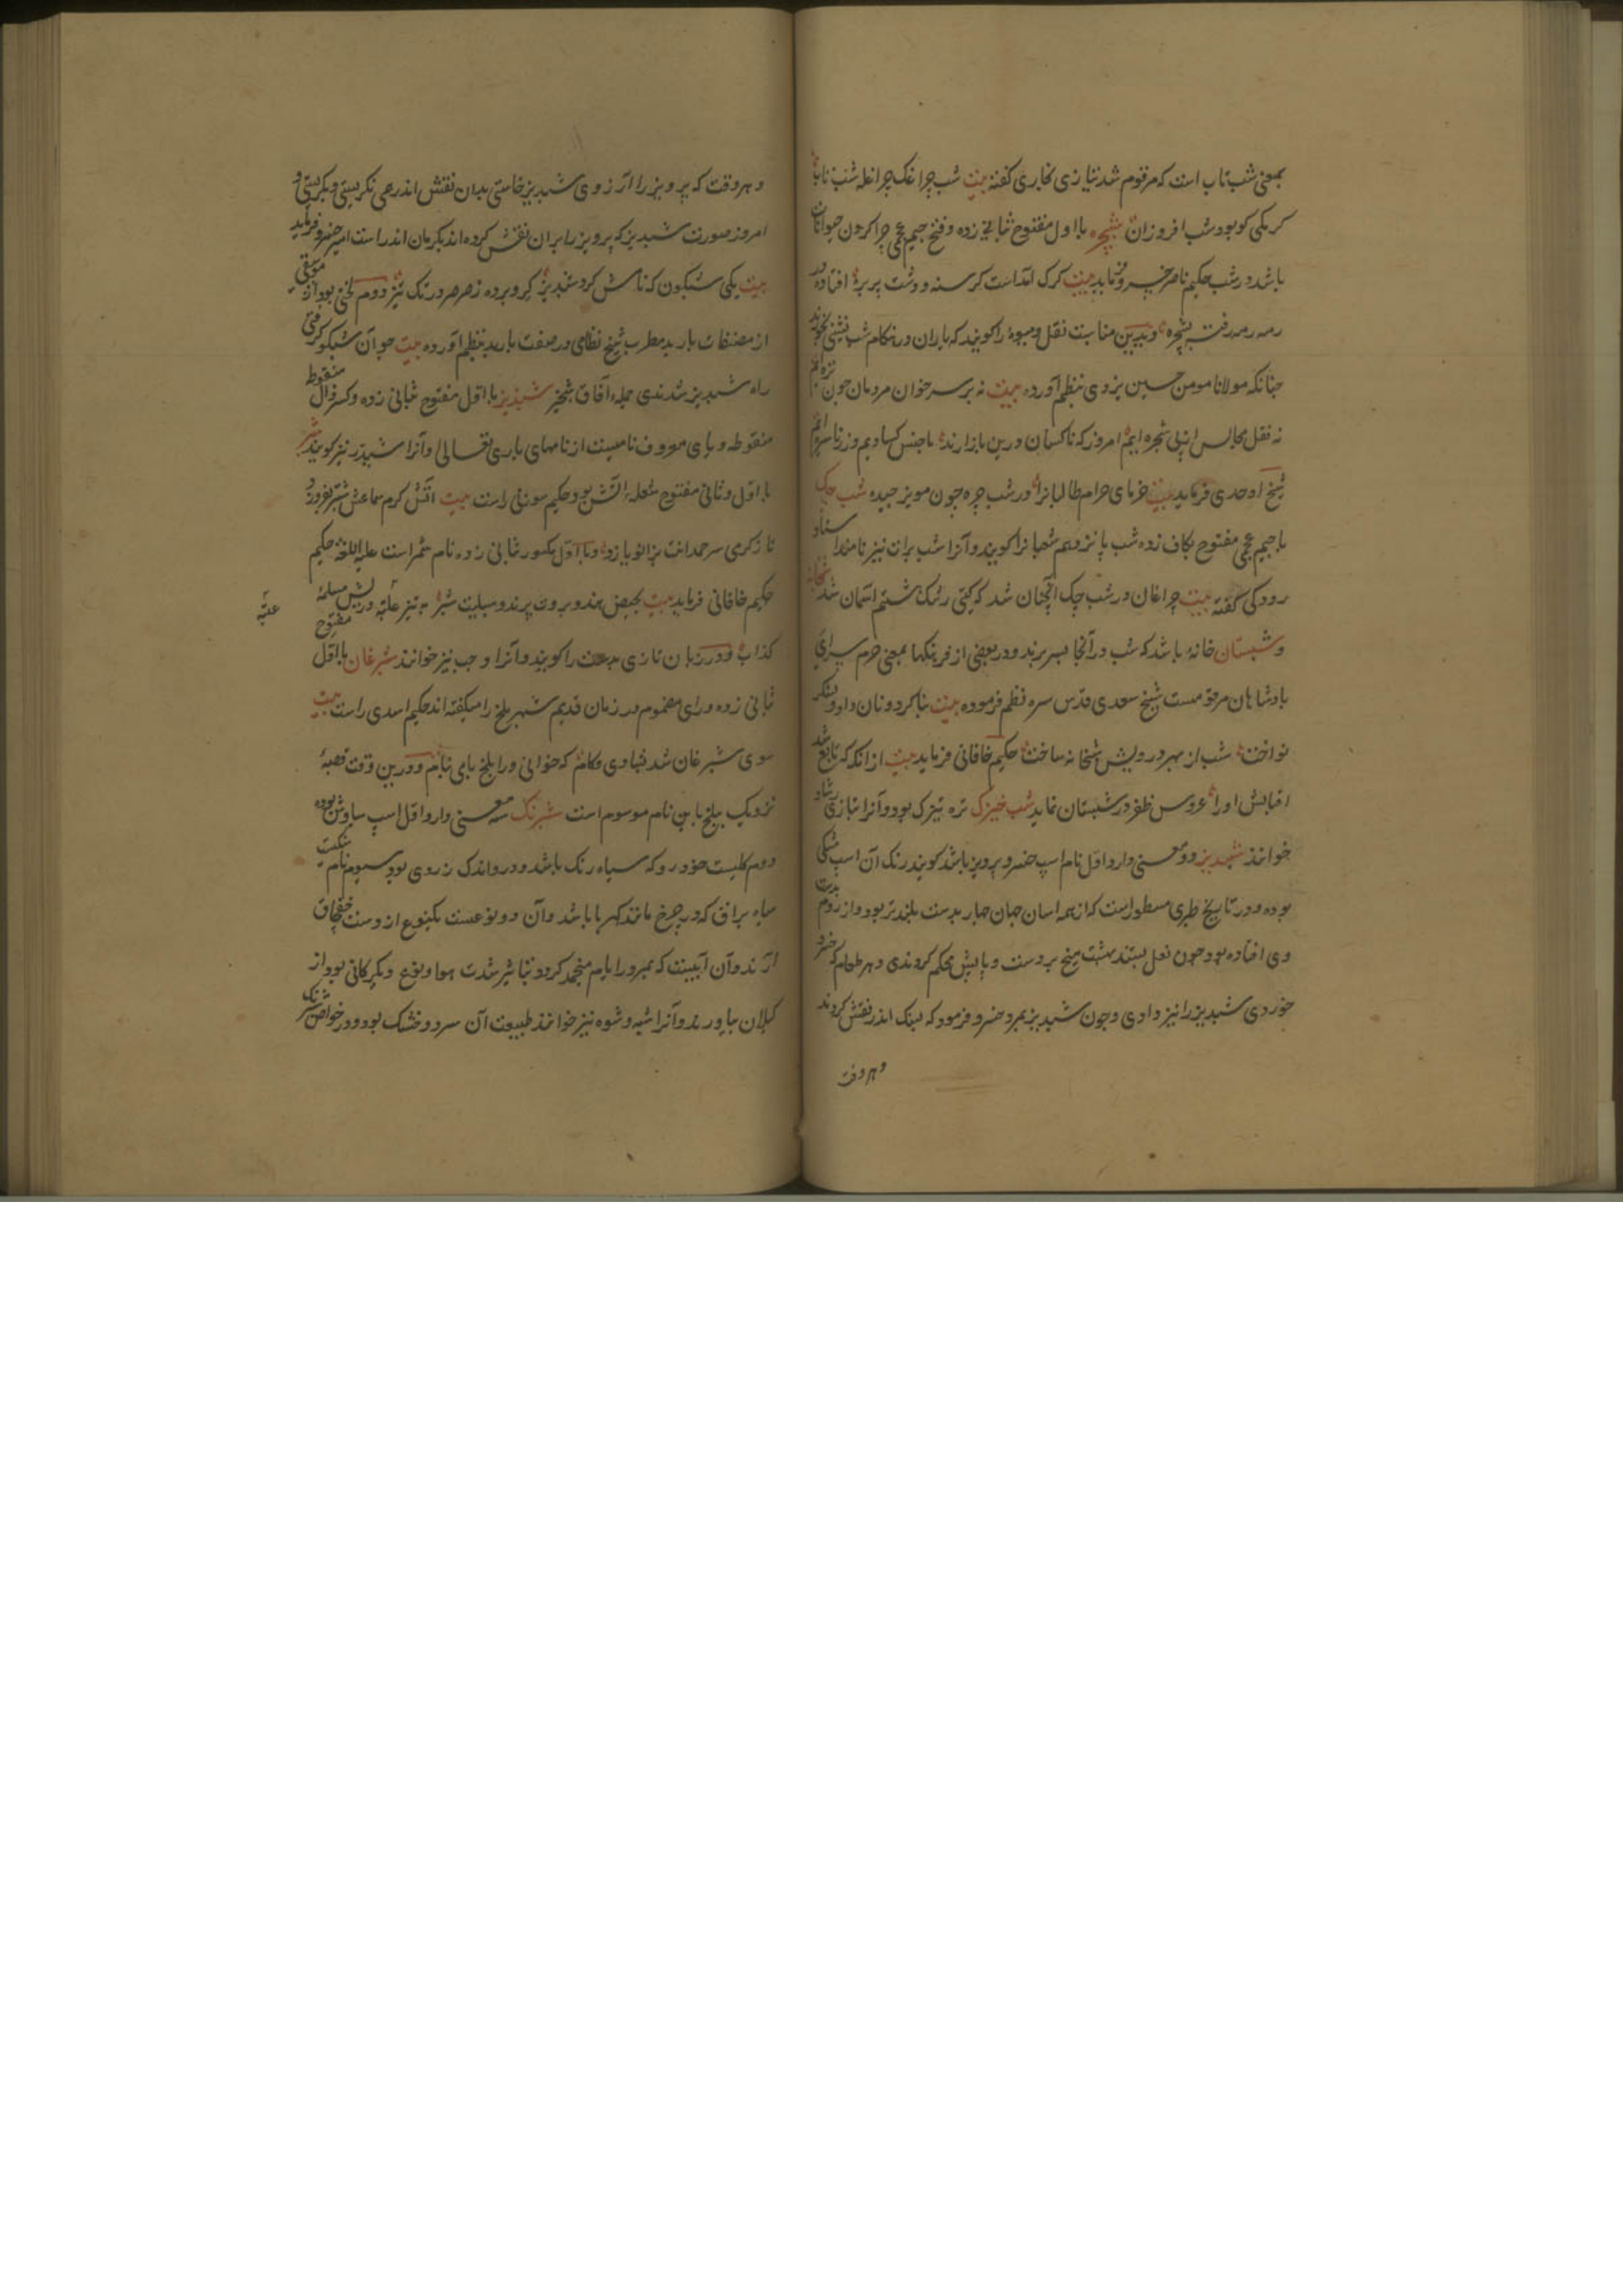 بمعنی شب تاب است که مرقوم شد نتیازی بخاری کفته بیت شب چراغک چراغله شب تاب
کرمکی کو بود شب افروزان شبچره با اول مفتوح ثانی زده و فتح جیم عجمی چرا کردن حیوانان
باشد در شب حکیم ناصر خسرو فرماید بیت کرک آمداست کرسنه و دشت پر بره افتاده در
رمه رمه رفت بشچره و بدین مناسبت نقل و میوه را کویند که یاران در هنکام شب نشینی بخورند
چنانکه مولانا مومن حسین یزدی بنظم آورده بیت نه بر سر خوان مردمان چون تره ایم
نه نقل مجالس انبلی شجره ایم امروز که ناکسان درین بازارند با جنس کساد یم و زر ناسره ایم
شیخ اوحدی فرماید بیت خرمای حرام طالبانرا در شب چره چون مویز چیده شب چک
با جیم عجمی مفتوح بکاف زده شب پانزدهم شعبانرا کویند و آنرا شب برات نیز نامند استاد
رودکی کفته بیت چراغان در شب چک آنچنان شد که کیتی رشک هشتم آسمان شد شبخانه
و شبستان خانه باشد که شب در آنجا بسر برند و در بعضی از فرهنکها بمعنی حرم سرای
بادشاهان مرقومست شیخ سعدی قدس سره نظم فرموده بیت بنا کرد و نان داد و لشکر
نواخت شب از بهر درویش شبخانه ساخت حکیم خاقانی فرماید بیت از آنکه که تابع شد
اقبالش او را عروس ظفر در شبستان نماید شب خیزک تره تیزک بود و آنرا بتازی رشاد
خوانند شبدیز دو معنی دارد اول نام اسپ خسرو پرویز باشد کویند رنک آن اسپ مشکی
بوده و در تاریخ طبری مسطور است که از همه اسپان جهان چهار بدست بلندتر بود و از روم بدست
وی افتاده بود و چون نعل بستند بهشت میخ بر دست و پایش محکم کردندی و هر طعام که خسرو
خوردی شبدیز را نیز دادی و چون شبدیز بمرد خسرو فرمود که بسنک اندر نقش کردند
و هر وقت
و هر وقت که پرویز را آرزوی شبدیز خاستی بدان نقش اندر همی نکریستی و بکریستی و
امروز صورت شبدیز که پرویز را بران نقش کرده اند بکرمان اندر است امیر خسرو فرماید
بیت یکی شبکون که نامش کرد شبدیز کرو برده ز صرصر در تک تیز دوم لحنی بود از موسیقی
از مصنفات باربد مطرب شیخ نظامی در صفت باربد بنظم آورده بیت چو آن شبکو کرفتی
راه شبدیز شدندی جمله آفاق شبخیز شبذیز با اول مفتوح بثانی زده و کسر ذال منقوطه
منقوطه و یای معروف نامیست از نامهای باری تعالی و آنرا شبذر نیز کویند شبر
با اول و ثانی مفتوح شعله آتش بود حکیم سوزنی راست بیت آتش کرم سماعش شبر بفروزد
تا زکرمی سرحمدانت بزانو بازد و با اول مکسور ثانی زده نام شمر است علیه اللعنة حکیم
حکیم خاقانی فرماید بیت بحیض هند و بروت یزید و سبلیت شبر به تیز علبه و ریش مسیلمه
عتبه
کذاب و در زبان تازی بدست را کویند و آنرا وجب نیز خوانند شبرغان با اول مفتوح
ثانی زده و رای مضموم در زمان قدیم شهر بلخ را میکفته اند حکیم اسدی راست بیت
سوی شبرغان شد بشادی و کام که خوانی ورا بلخ بامی بنام و درین وقت قصبه
نزدیک ببلخ باین نام موسوم است شبرنک سه معنی دارد اول اسپ سیاوش بوده
دوم کلیست خودرو که سیاه رنک باشد و درو اندک زردی بود سیوم نام سنکیست
سیاه براق که در چرخ مانند کهربا باشد و آن دو نوعست یکنوع از دشت خفچاق
آرند و آن آبیست که بمرور ایام منجمد کردد بتاثیر شدت هوا و نوع دیکر کانی بود از
کیلان بیاورند و آنرا شبه و شوه نیز خوانند طبیعت آن سرد و خشک بود و در خواص شبرنک